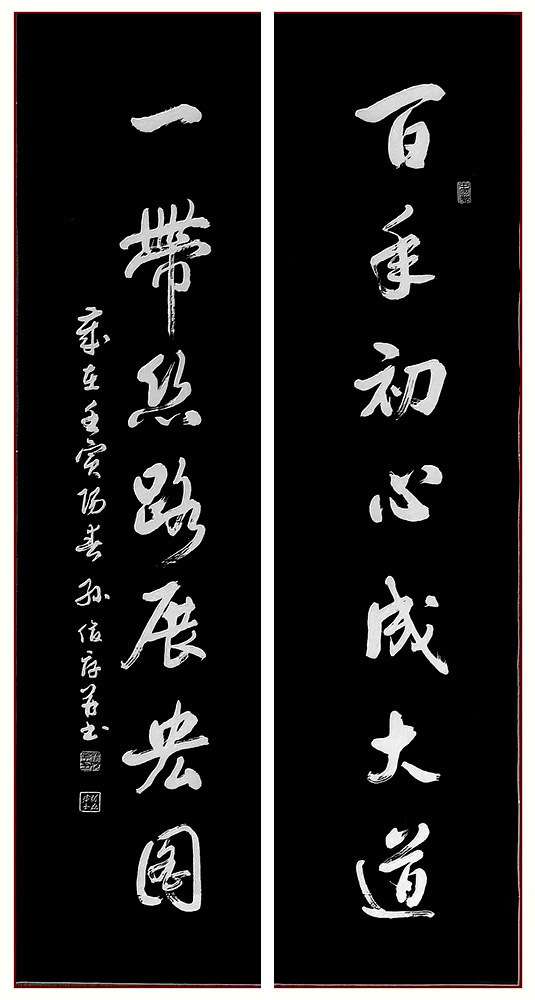 百年初心成大道
一帶丝路展宏图
歲在壬寅阳春 孙俊存 书